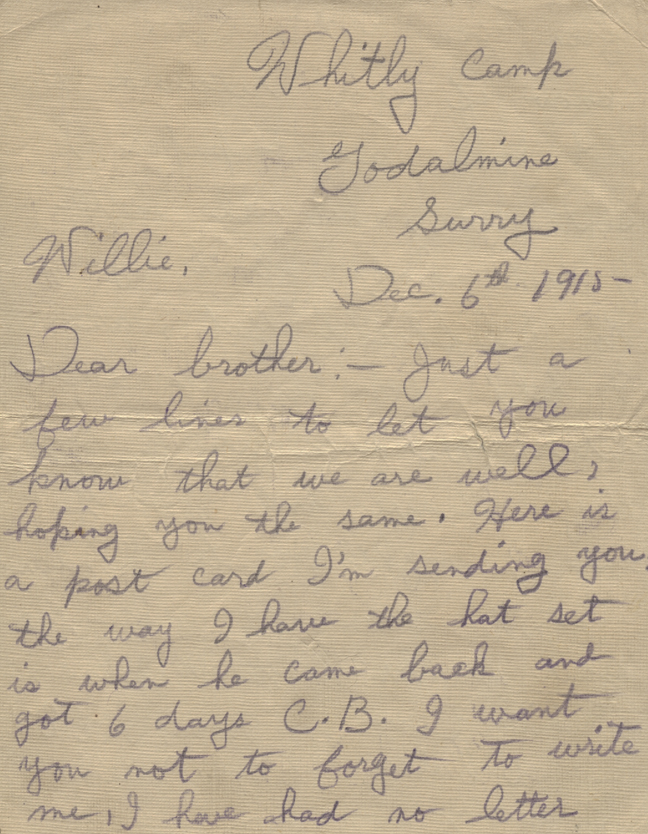 Whitly Camp
Godalmine
Surry
Willie,
Dec. 6th 1915-
Dear brother:- Just a
few lines to let you
know that we are well,
hoping you the same. Here is
a post card I'm sending you,
the way I have the hat set
is when he came back and
got 6 days C.B. I want
you not to forget to write
me, I have had no letter